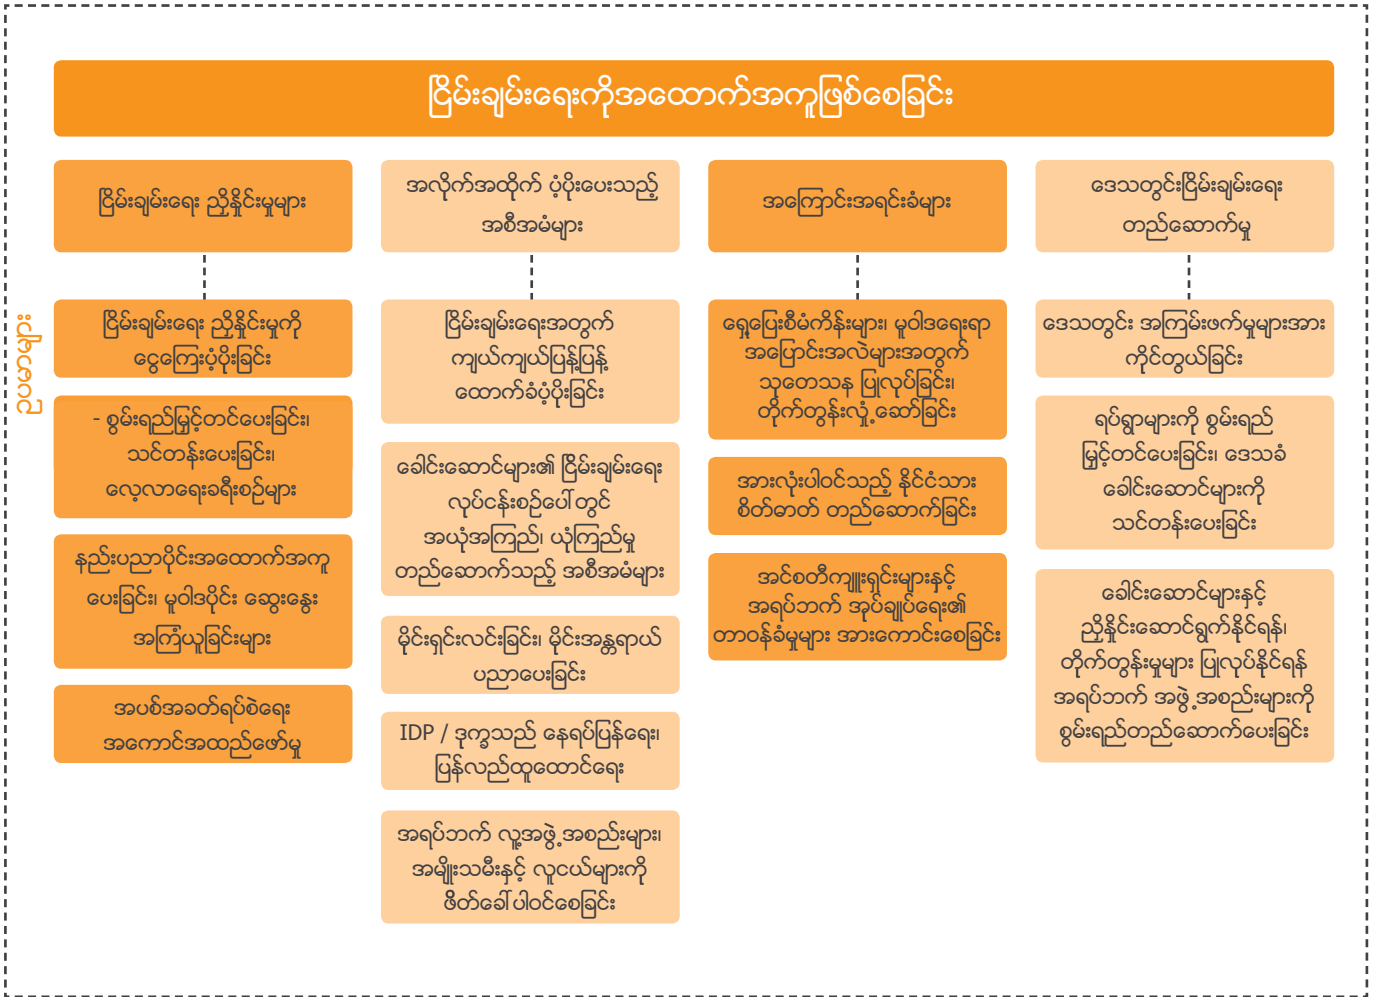 ငြိမ်းချမ်းရေးကိုအထောက်အကူဖြစ်စေခြင်း
ငြိမ်းချမ်းရေး ညှိနှိုင်းမှုများ
အလိုက်အထိုက် ပံ့ပိုးပေးသည့်
အစီအမံများ
အကြောင်းအရင်းခံများ
ဒေသတွင်းငြိမ်းချမ်းရေး
တည်ဆောက်မှု
ဥပမာများ
ငြိမ်းချမ်းရေး ညှိနှိုင်းမှုကို
ငွေကြေးပံ့ပိုးခြင်း
- စွမ်းရည်မြှင့်တင်ပေးခြင်း၊
သင်တန်းပေးခြင်း၊
လေ့လာရေးခရီးစဉ်များ
နည်းပညာပိုင်းအထောက်အကူ
ပေးခြင်း၊ မူဝါဒပိုင်း ဆွေးနွေး
အကြံယူခြင်းများ
အပစ်အခတ်ရပ်စဲရေး
အကောင်အထည်ဖော်မှု
ငြိမ်းချမ်းရေးအတွက်
ကျယ်ကျယ်ပြန့်ပြန့်
ထောက်ခံပံ့ပိုးခြင်း
ခေါင်းဆောင်များ၏ ငြိမ်းချမ်းရေး
လုပ်ငန်းစဉ်ပေါ်တွင်
အယုံအကြည်၊ ယုံကြည်မှု
တည်ဆောက်သည့် အစီအမံများ
မိုင်းရှင်းလင်းခြင်း၊ မိုင်းအန္တရာယ်
ပညာပေးခြင်း
IDP / ဒုက္ခသည် နေရပ်ပြန်ရေး၊
ပြန်လည်ထူထောင်ရေး
အရပ်ဘက် လူ့အဖွဲ့အစည်းများ၊
အမျိုးသမီးနှင့် လူငယ်များကို
ဖိတ်ခေါ်ပါဝင်စေခြင်း
ရှေ့ပြေးစီမံကိန်းများ၊ မူဝါဒရေးရာ
အပြောင်းအလဲများအတွက်
သုတေသန ပြုလုပ်ခြင်း၊
တိုက်တွန်းလှုံ့ဆော်ခြင်း
အားလုံးပါဝင်သည့် နိုင်ငံသား
စိတ်ဓာတ် တည်ဆောက်ခြင်း
အင်စတီကျူးရှင်းများနှင့်
အရပ်ဘက် အုပ်ချုပ်ရေး၏
တာဝန်ခံမှုများ အားကောင်းစေခြင်း
ဒေသတွင်း အကြမ်းဖက်မှုများအား
ကိုင်တွယ်ခြင်း
ရပ်ရွာများကို စွမ်းရည်
မြှင့်တင်ပေးခြင်း၊ ဒေသခံ
ခေါင်းဆောင်များကို
သင်တန်းပေးခြင်း
ခေါင်းဆောင်များနှင့်
ညှိနှိုင်းဆောင်ရွက်နိုင်ရန်၊
တိုက်တွန်းမှုများ ပြုလုပ်နိုင်ရန်
အရပ်ဘက် အဖွဲ့အစည်းများကို
စွမ်းရည်တည်ဆောက်ပေးခြင်း